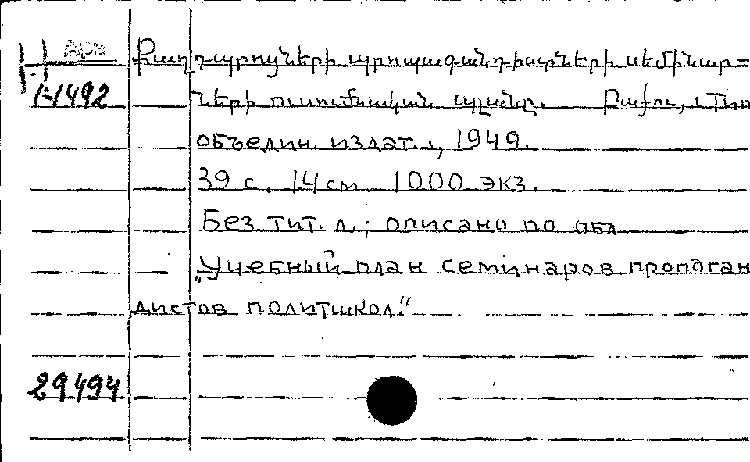 Арм
Քաղդպրոցների պրոպագանդիստների սեմինար-
1-1492
ների ուսումնական պլանը. Բաքու, 1 Тип
объедин. издат., 1949.
39 с. 14 см 1000 экз.
Без тит. л.; описано по обл
„Учебный план семинаров пропаган
дистов политшкол."
29494